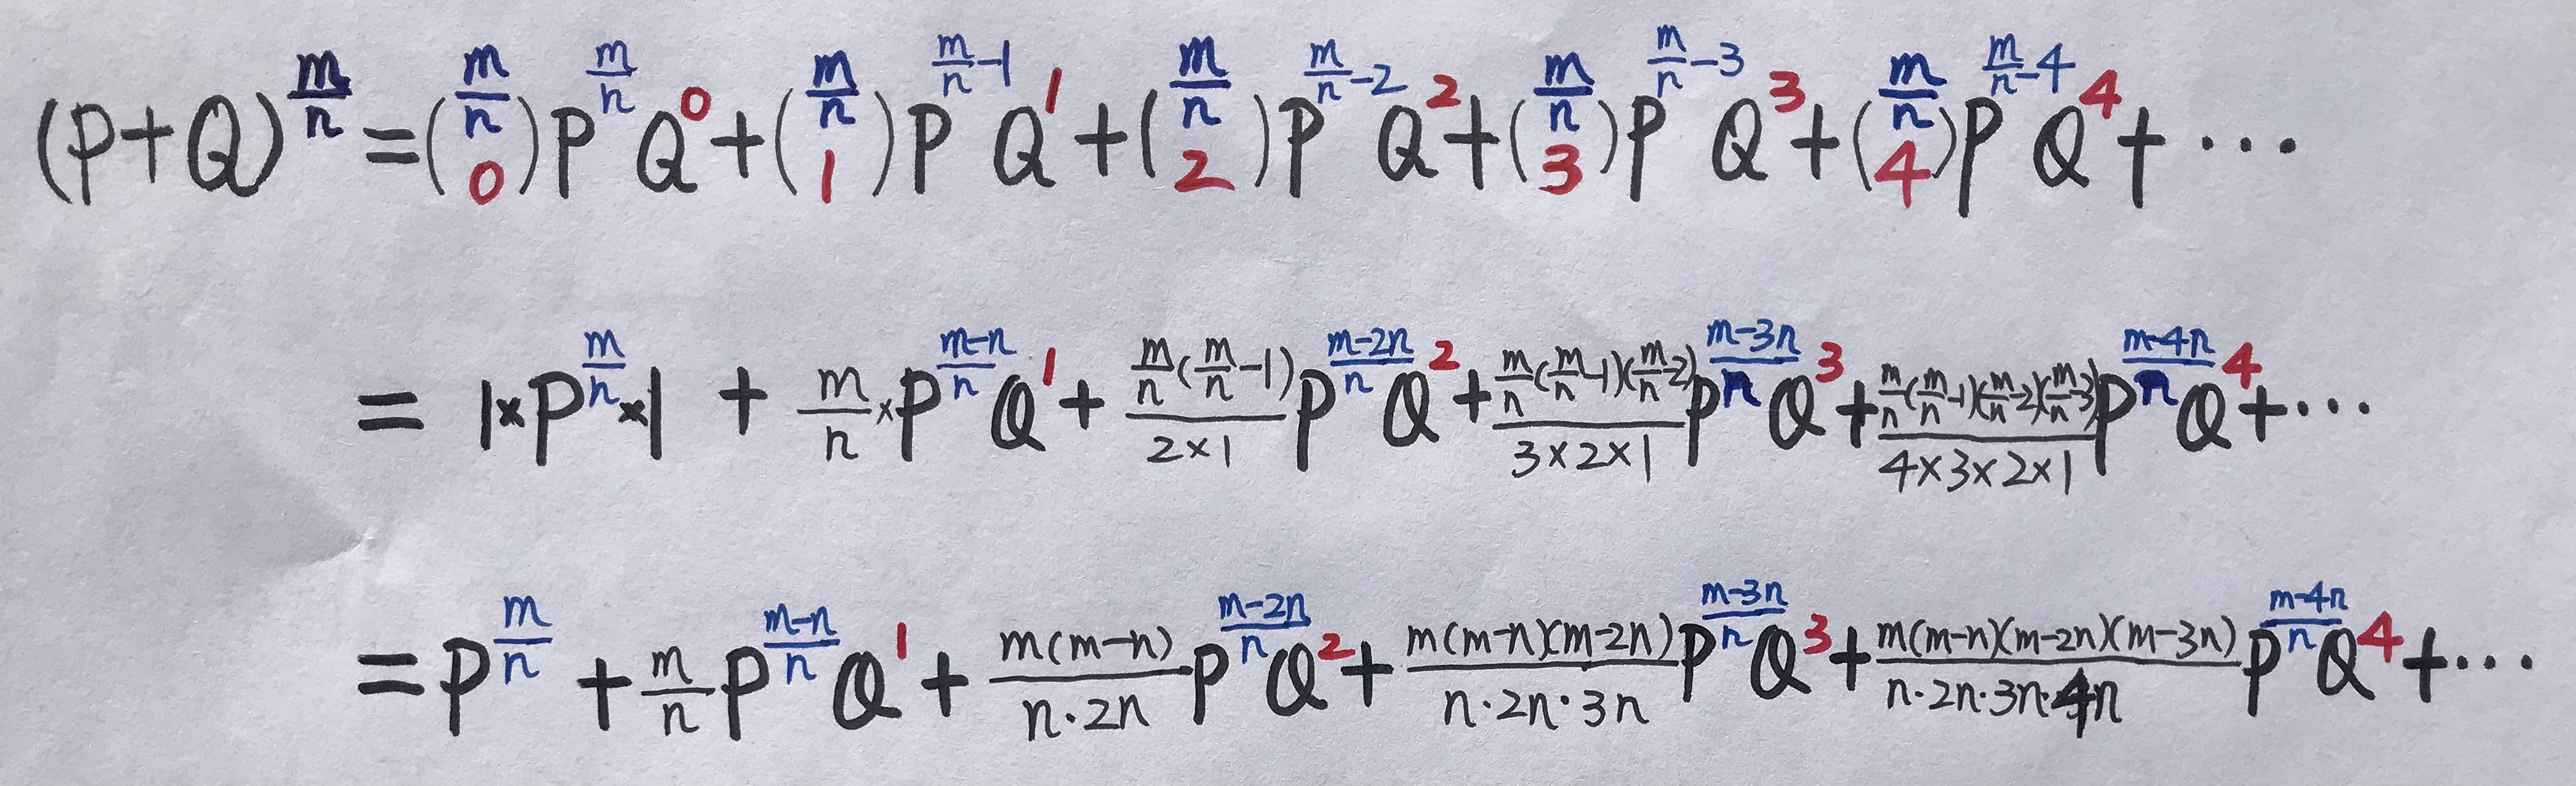 (P+Q)^{\frac{m}{n}} = \binom{\frac{m}{n}}{0} P^{\frac{m}{n}} Q^0 + \binom{\frac{m}{n}}{1} P^{\frac{m}{n}-1} Q^1 + \binom{\frac{m}{n}}{2} P^{\frac{m}{n}-2} Q^2 + \binom{\frac{m}{n}}{3} P^{\frac{m}{n}-3} Q^3 + \binom{\frac{m}{n}}{4} P^{\frac{m}{n}-4} Q^4 + ⋯
= 1×P^{\frac{m}{n}}×1 + \frac{m}{n}×P^{\frac{m-n}{n}} Q^1 + \frac{\frac{m}{n}(\frac{m}{n}-1)}{2×1} P^{\frac{m-2n}{n}} Q^2 + \frac{\frac{m}{n}(\frac{m}{n}-1)(\frac{m}{n}-2)}{3×2×1} P^{\frac{m-3n}{n}} Q^3 + \frac{\frac{m}{n}(\frac{m}{n}-1)(\frac{m}{n}-2)(\frac{m}{n}-3)}{4×3×2×1} P^{\frac{m-4n}{n}} Q^4 + ⋯
= P^{\frac{m}{n}} + \frac{m}{n} P^{\frac{m-n}{n}} Q^1 + \frac{m(m-n)}{n·2n} P^{\frac{m-2n}{n}} Q^2 + \frac{m(m-n)(m-2n)}{n·2n·3n} P^{\frac{m-3n}{n}} Q^3 + \frac{m(m-n)(m-2n)(m-3n)}{n·2n·3n·4n} P^{\frac{m-4n}{n}} Q^4 + ⋯